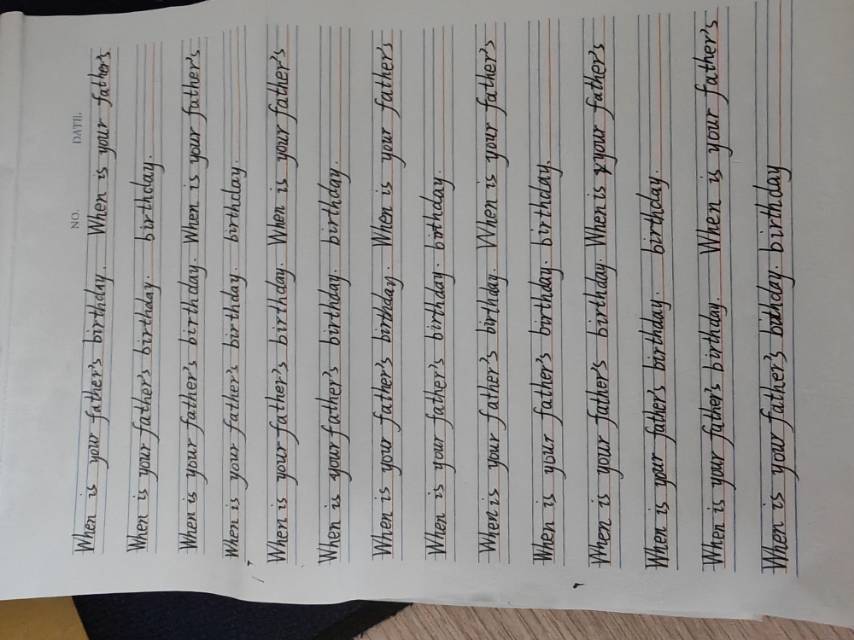 NO. DATE.
When is your father's birthday. When is your father's
When is your father's birthday. birthday.
When is your father's birthday. When is your father's
When is your father's birthday. birthday.
When is your father's birthday. When is your father's
When is your father's birthday. birthday.
When is your father's birthday. When is your father's
When is your father's birthday. birthday.
When is your father's birthday. When is your father's
When is your father's birthday. birthday.
When is your father's birthday. When is your father's
When is your father's birthday. birthday.
When is your father's birthday. When is your father's
When is your father's birthday. birthday